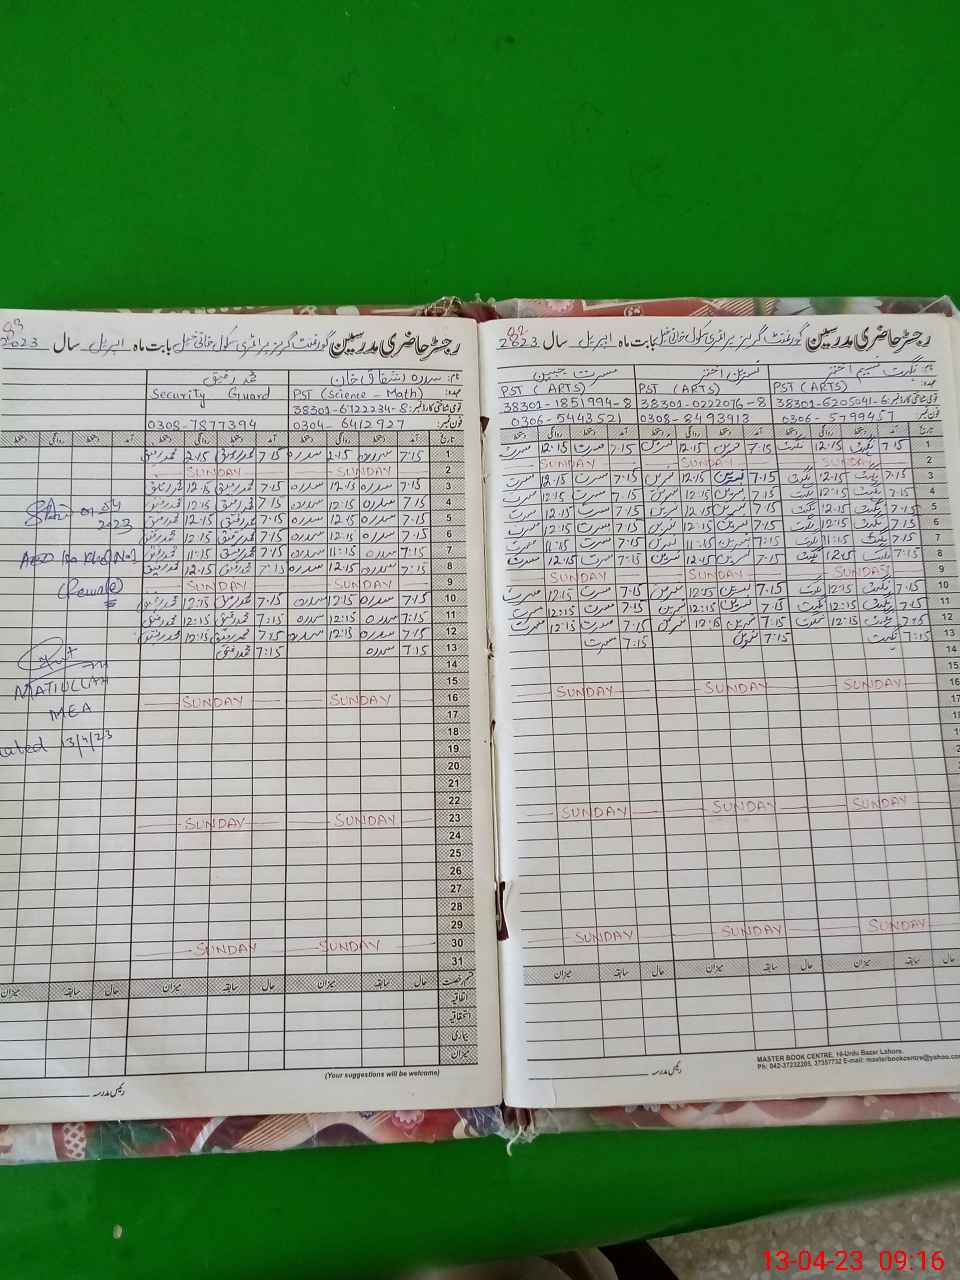 رجسٹر حاضری مدرسین گورنمنٹ گرلز پرائمری سکول بابت ماہ اپریل سال 2023
نام: نگہت نسیم اختر نسرین اختر مسرت جبین
عہدہ: PST (ARTS) PST (ARTS) PST (ARTS)
قومی شناختی کارڈ نمبر: 38301-6205041-6 38301-0222076-8 38301-1851994-8
فون نمبر: 0306-5799457 0308-8493913 0306-5443521
تاریخ آمد دستخط روانگی دستخط آمد دستخط روانگی دستخط آمد دستخط روانگی دستخط
1 7.15 نگہت 12.15 نگہت 7.15 نسرین 12.15 نسرین 7.15 مسرت 12.15 مسرت
2 SUNDAY SUNDAY SUNDAY
3 7.15 نگہت 12.15 نگہت 7.15 نسرین 12.15 نسرین 7.15 مسرت 12.15 مسرت
4 7.15 نگہت 12.15 نگہت 7.15 نسرین 12.15 نسرین 7.15 مسرت 12.15 مسرت
5 7.15 نگہت 12.15 نگہت 7.15 نسرین 12.15 نسرین 7.15 مسرت 12.15 مسرت
6 7.15 نگہت 12.15 نگہت 7.15 نسرین 12.15 نسرین 7.15 مسرت 12.15 مسرت
7 7:15 نگہت 11:15 نگہت 7:15 نسرین 11:15 نسرین 7:15 مسرت 11:15 مسرت
8 7.15 نگہت 12.15 نگہت 7.15 نسرین 12.15 نسرین 7.15 مسرت 12.15 مسرت
9 SUNDAY SUNDAY SUNDAY
10 7.15 نگہت 12.15 نگہت 7.15 نسرین 12.15 نسرین 7.15 مسرت 12.15 مسرت
11 7.15 نگہت 12:15 نگہت 7.15 نسرین 12:15 نسرین 7.15 مسرت 12:15 مسرت
12 7.15 نگہت 12:15 نگہت 7.15 نسرین 12:15 نسرین 7.15 مسرت 12:15 مسرت
13 7:15 نگہت 7:15 نسرین 7:15 مسرت
14
15
16 SUNDAY SUNDAY SUNDAY
17
18
19
SUNDAY SUNDAY SUNDAY
SUNDAY SUNDAY SUNDAY
حال سابقہ میزان حال سابقہ میزان حال سابقہ میزان
MASTER BOOK CENTRE, 10-Urdu Bazar Lahore.
Ph: 042-37232205, 37357732 E-mail: masterbookcentre@yahoo.com
رئیس مدرسہ
رجسٹر حاضری مدرسین گورنمنٹ گرلز پرائمری سکول بابت ماہ اپریل سال 2023
نام: سدرہ اشفاق خان محمد رفیق
عہدہ: PST (Science - Math) Security Guard
قومی شناختی کارڈ نمبر: 38301-6722234-8
فون نمبر: 0304-6412927 0308-7877394
تاریخ آمد دستخط روانگی دستخط آمد دستخط روانگی دستخط آمد دستخط روانگی دستخط
1 7.15 سدرہ 2.15 سدرہ 7.15 محمد رفیق 2.15 محمد رفیق
2 SUNDAY SUNDAY
3 7.15 سدرہ 12.15 سدرہ 7.15 محمد رفیق 12.15 محمد رفیق
4 7.15 سدرہ 12.15 سدرہ 7.15 محمد رفیق 12.15 محمد رفیق
5 7.15 سدرہ 12.15 سدرہ 7.15 محمد رفیق 12.15 محمد رفیق
6 7.15 سدرہ 12.15 سدرہ 7.15 محمد رفیق 12.15 محمد رفیق
7 7:15 سدرہ 11:15 سدرہ 7:15 محمد رفیق 11:15 محمد رفیق
8 7.15 سدرہ 12.15 سدرہ 7:15 محمد رفیق 12.15 محمد رفیق
9 SUNDAY SUNDAY
10 7.15 سدرہ 12.15 سدرہ 7.15 محمد رفیق 12.15 محمد رفیق
11 7.15 سدرہ 12:15 سدرہ 7.15 محمد رفیق 12:15 محمد رفیق
12 7.15 سدرہ 12:15 سدرہ 7.15 محمد رفیق 12:15 محمد رفیق
13 7:15 سدرہ 7:15 محمد رفیق
14
15
16 SUNDAY SUNDAY
17
18
19
20
21
22
23 SUNDAY SUNDAY
24
25
26
27
28
29
30 SUNDAY SUNDAY
31
قسم رخصت حال سابقہ میزان حال سابقہ میزان حال سابقہ میزان
اتفاقیہ
استحقاقیہ
بیماری
میزان
(Your suggestions will be welcome)
رئیس مدرسہ
01-04
2023
MATIULLAH
MEA
Dated 13/4/23
13-04-23 09:16